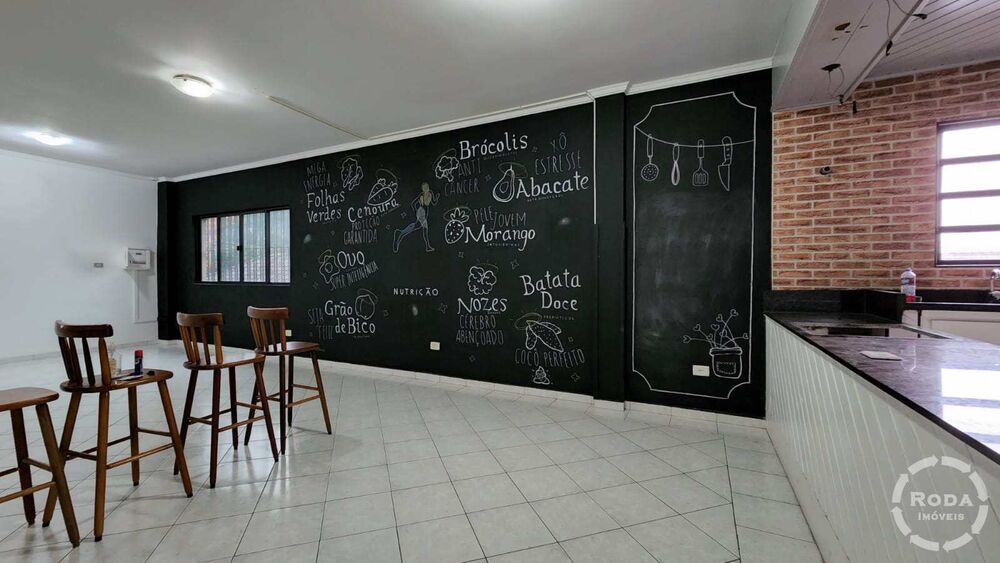 MEGA
ENERGIA
FOLHAS
VERDES
CENOURA
PROTEÇÃO
GARANTIDA
OVO
SUPER INTELIGÊNCIA
GRÃO
DE BICO
NUTRIÇÃO
BRÓCOLIS
ANTI
CÂNCER
XÔ
ESTRESSE
ABACATE
PELE JOVEM
MORANGO
NOZES
CÉREBRO
ABENÇOADO
BATATA
DOCE
COCÔ PERFEITO
RODA
IMÓVEIS